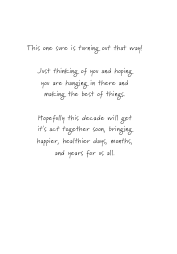 This one sure is turning out that way!
Just thinking of you and hoping
you are hanging in there and
making the best of things.
Hopefully this decade will get
it's act together soon, bringing
happier, healthier days, months,
and years for us all.